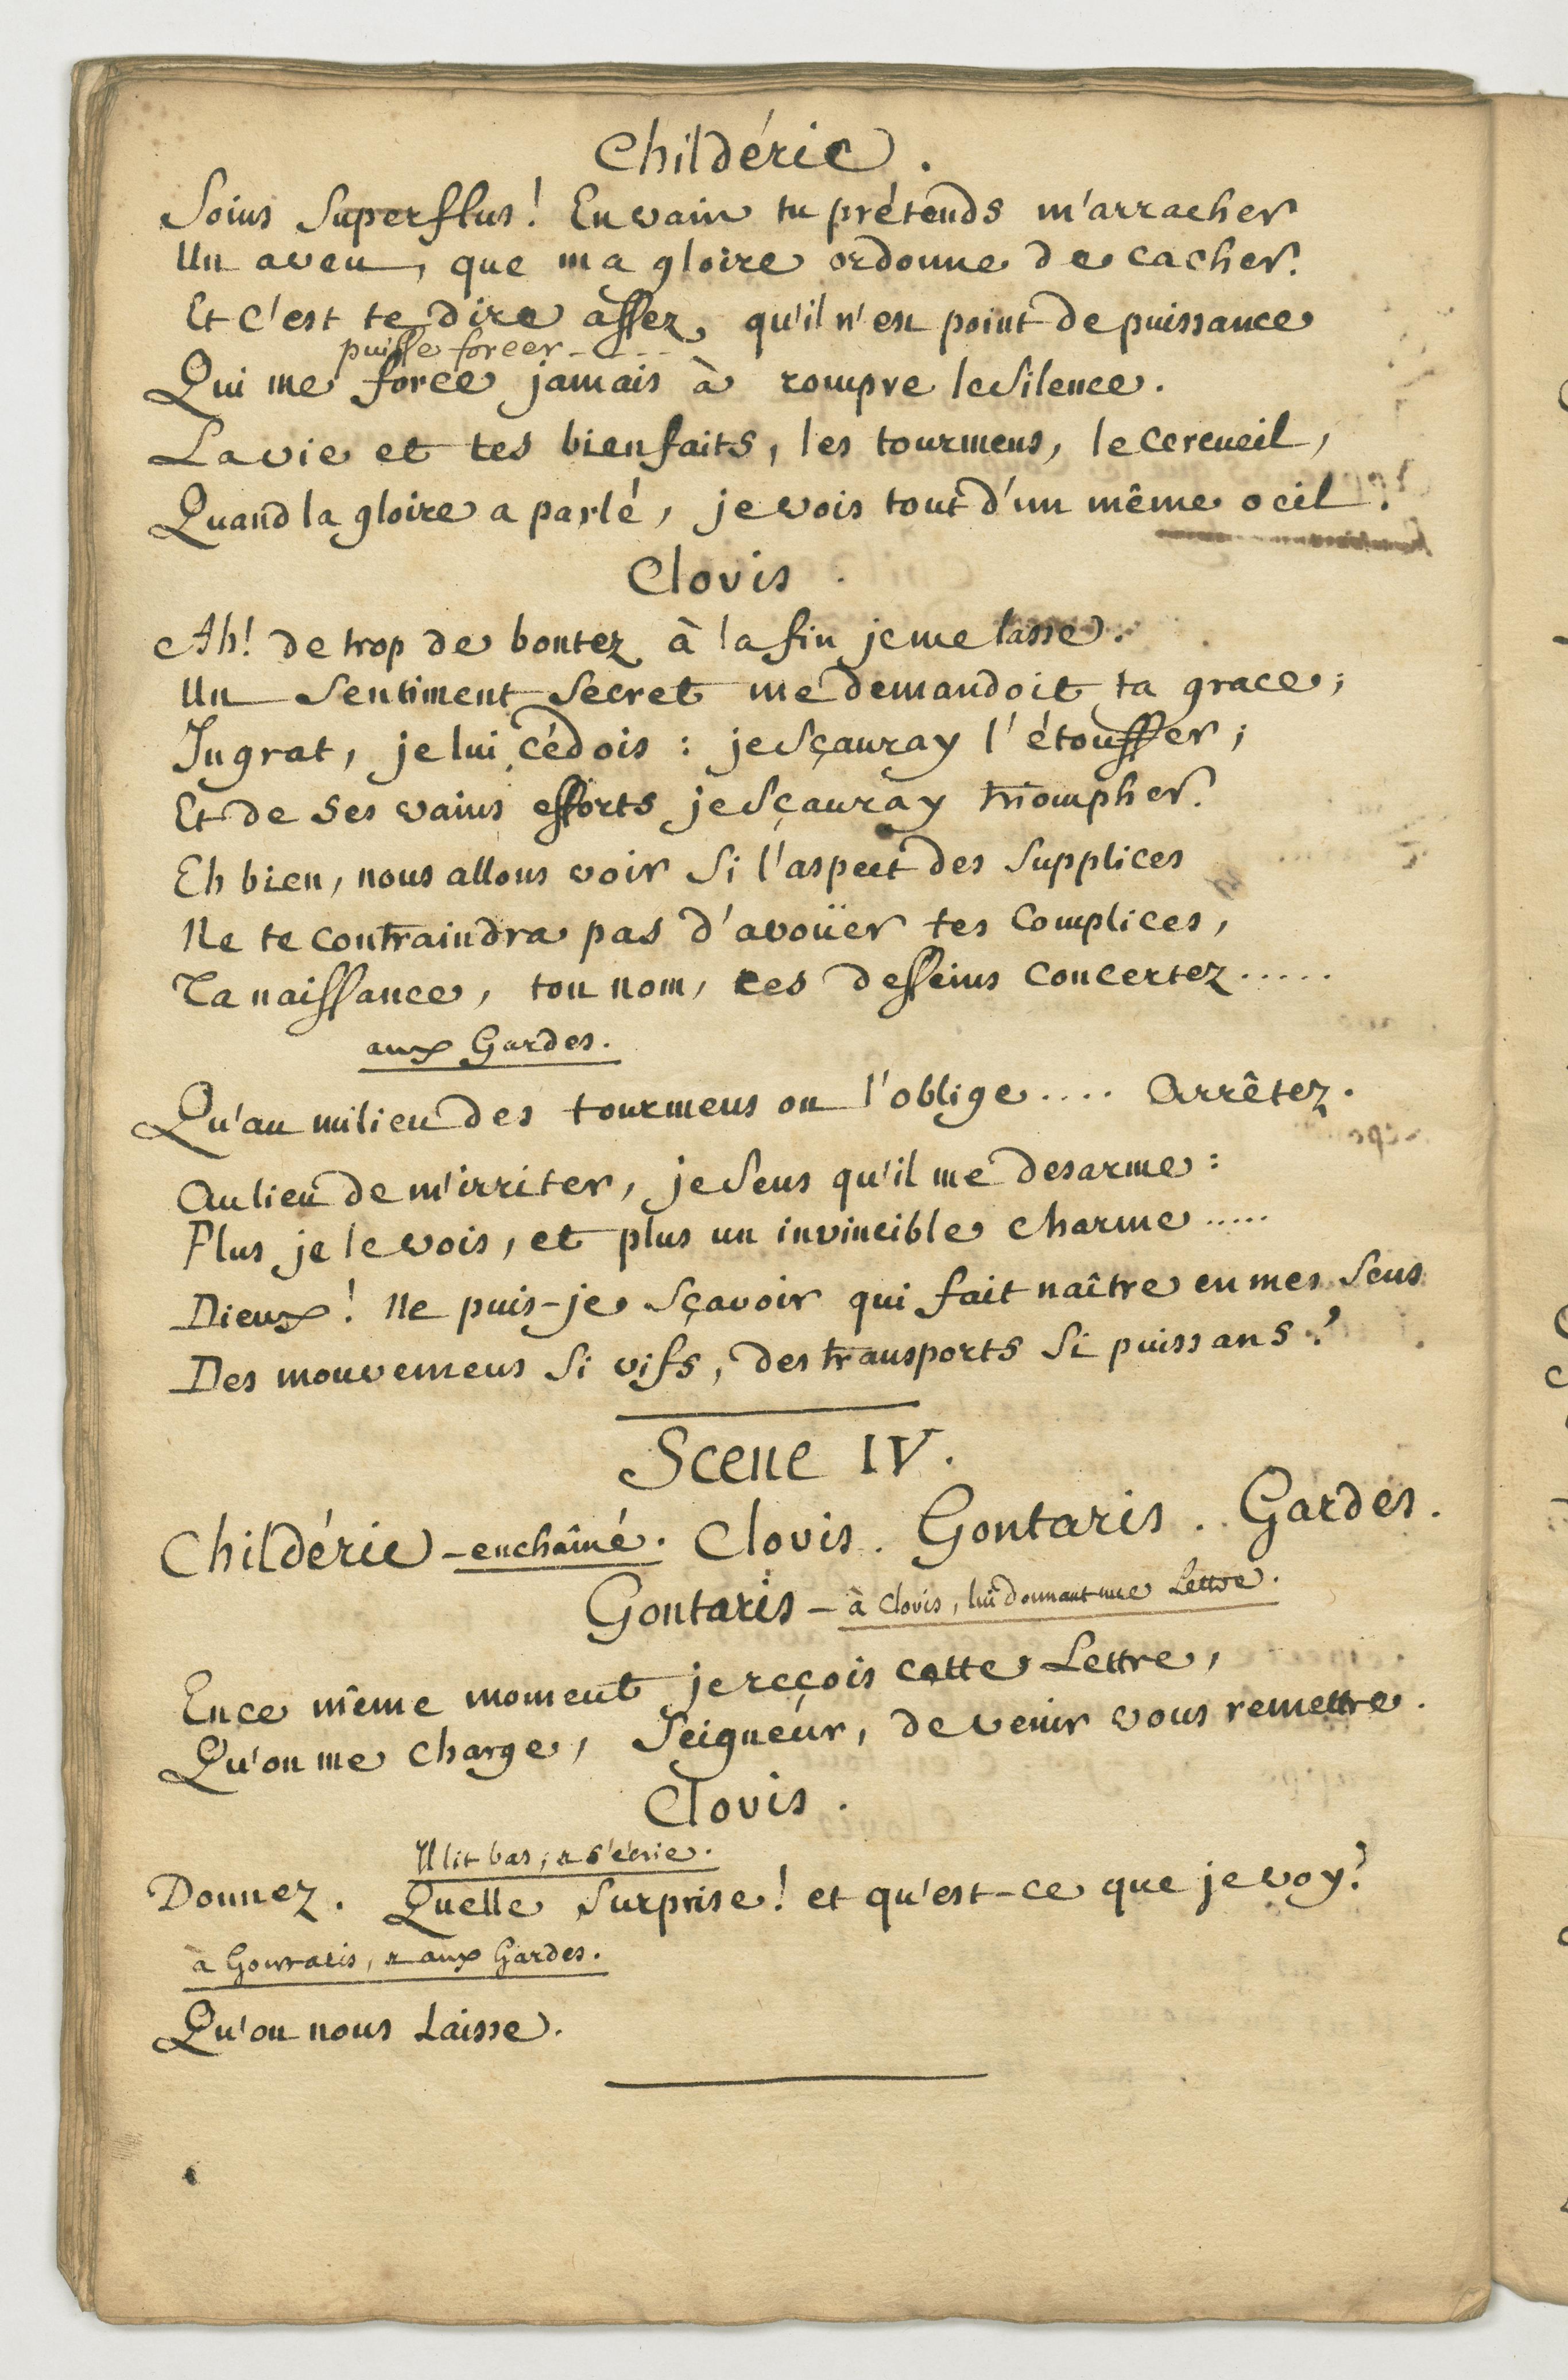 Childéric.
Soins Superflus! En vain tu prétends m'arracher
Un aveu, que ma gloire ordonne de cacher.
Et c'est te dire assez, qu'il n'est point de puissance
puisse forcer-....
Qui me force jamais à rompre le Silence.
La vie et tes bienfaits, les tourmens, le cercueil,
Quand la gloire a parlé, je vois tout d'un même oeil.
Clovis.
Ah! de trop de bontez à la fin je me lasse.
Un Sentiment Secret me demandoit ta grace;
Ingrat, je lui cédois: je Sçauray l'étouffer;
Et de ses vains efforts je Sçauray triompher.
Eh bien, nous allons voir Si l'aspect des Supplices
Ne te contraindra pas d'avoüer tes Complices,
Ta naissance, ton nom, tes desseins concertez.....
aux Gardes.
Qu'au milieu des tourmens on l'oblige.... Arrêtez.
Au lieu de m'irriter, je Sens qu'il me desarme:
Plus je le vois, et plus un invincible charme.....
Dieux! Ne puis-je Sçavoir qui fait naître en mes Sens
Des mouvemens Si vifs, des transports Si puissans?
Scene IV.
Childéric - enchaîné. Clovis. Gontaris. Gardes.
Gontaris - à Clovis, lui donnant une Lettre.
En ce même moment je reçois cette Lettre,
Qu'on me charge, Seigneur, de venir vous remettre.
Clovis.
Il lit bas, & s'écrie.
Donnez. Quelle Surprise! et qu'est-ce que je voy?
à Gontaris, & aux Gardes.
Qu'on nous Laisse.